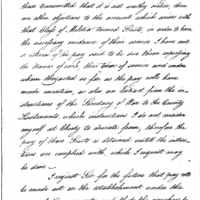 these transmitted that it is not worthy notice, there
are other objections to the account which arises with
that Class of Militia termed Scouts, in order to have
the necessary evidence of their service I have sent
a form of the pay and to be sent these expressing
the names of each, their time of service and under
whom they acted so far as the pay rolls have
made mention, as also an Extract from the in-
structions of the Secretary of War to the County
Lieutenants which instructions I do not consider
myself at liberty to deviate from, therefore the
pay of these Scouts is detained until the instruc-
tions are complied with, which I request may
be done.
I request Sir for the future that pay rolls
be made out on the establishment under the